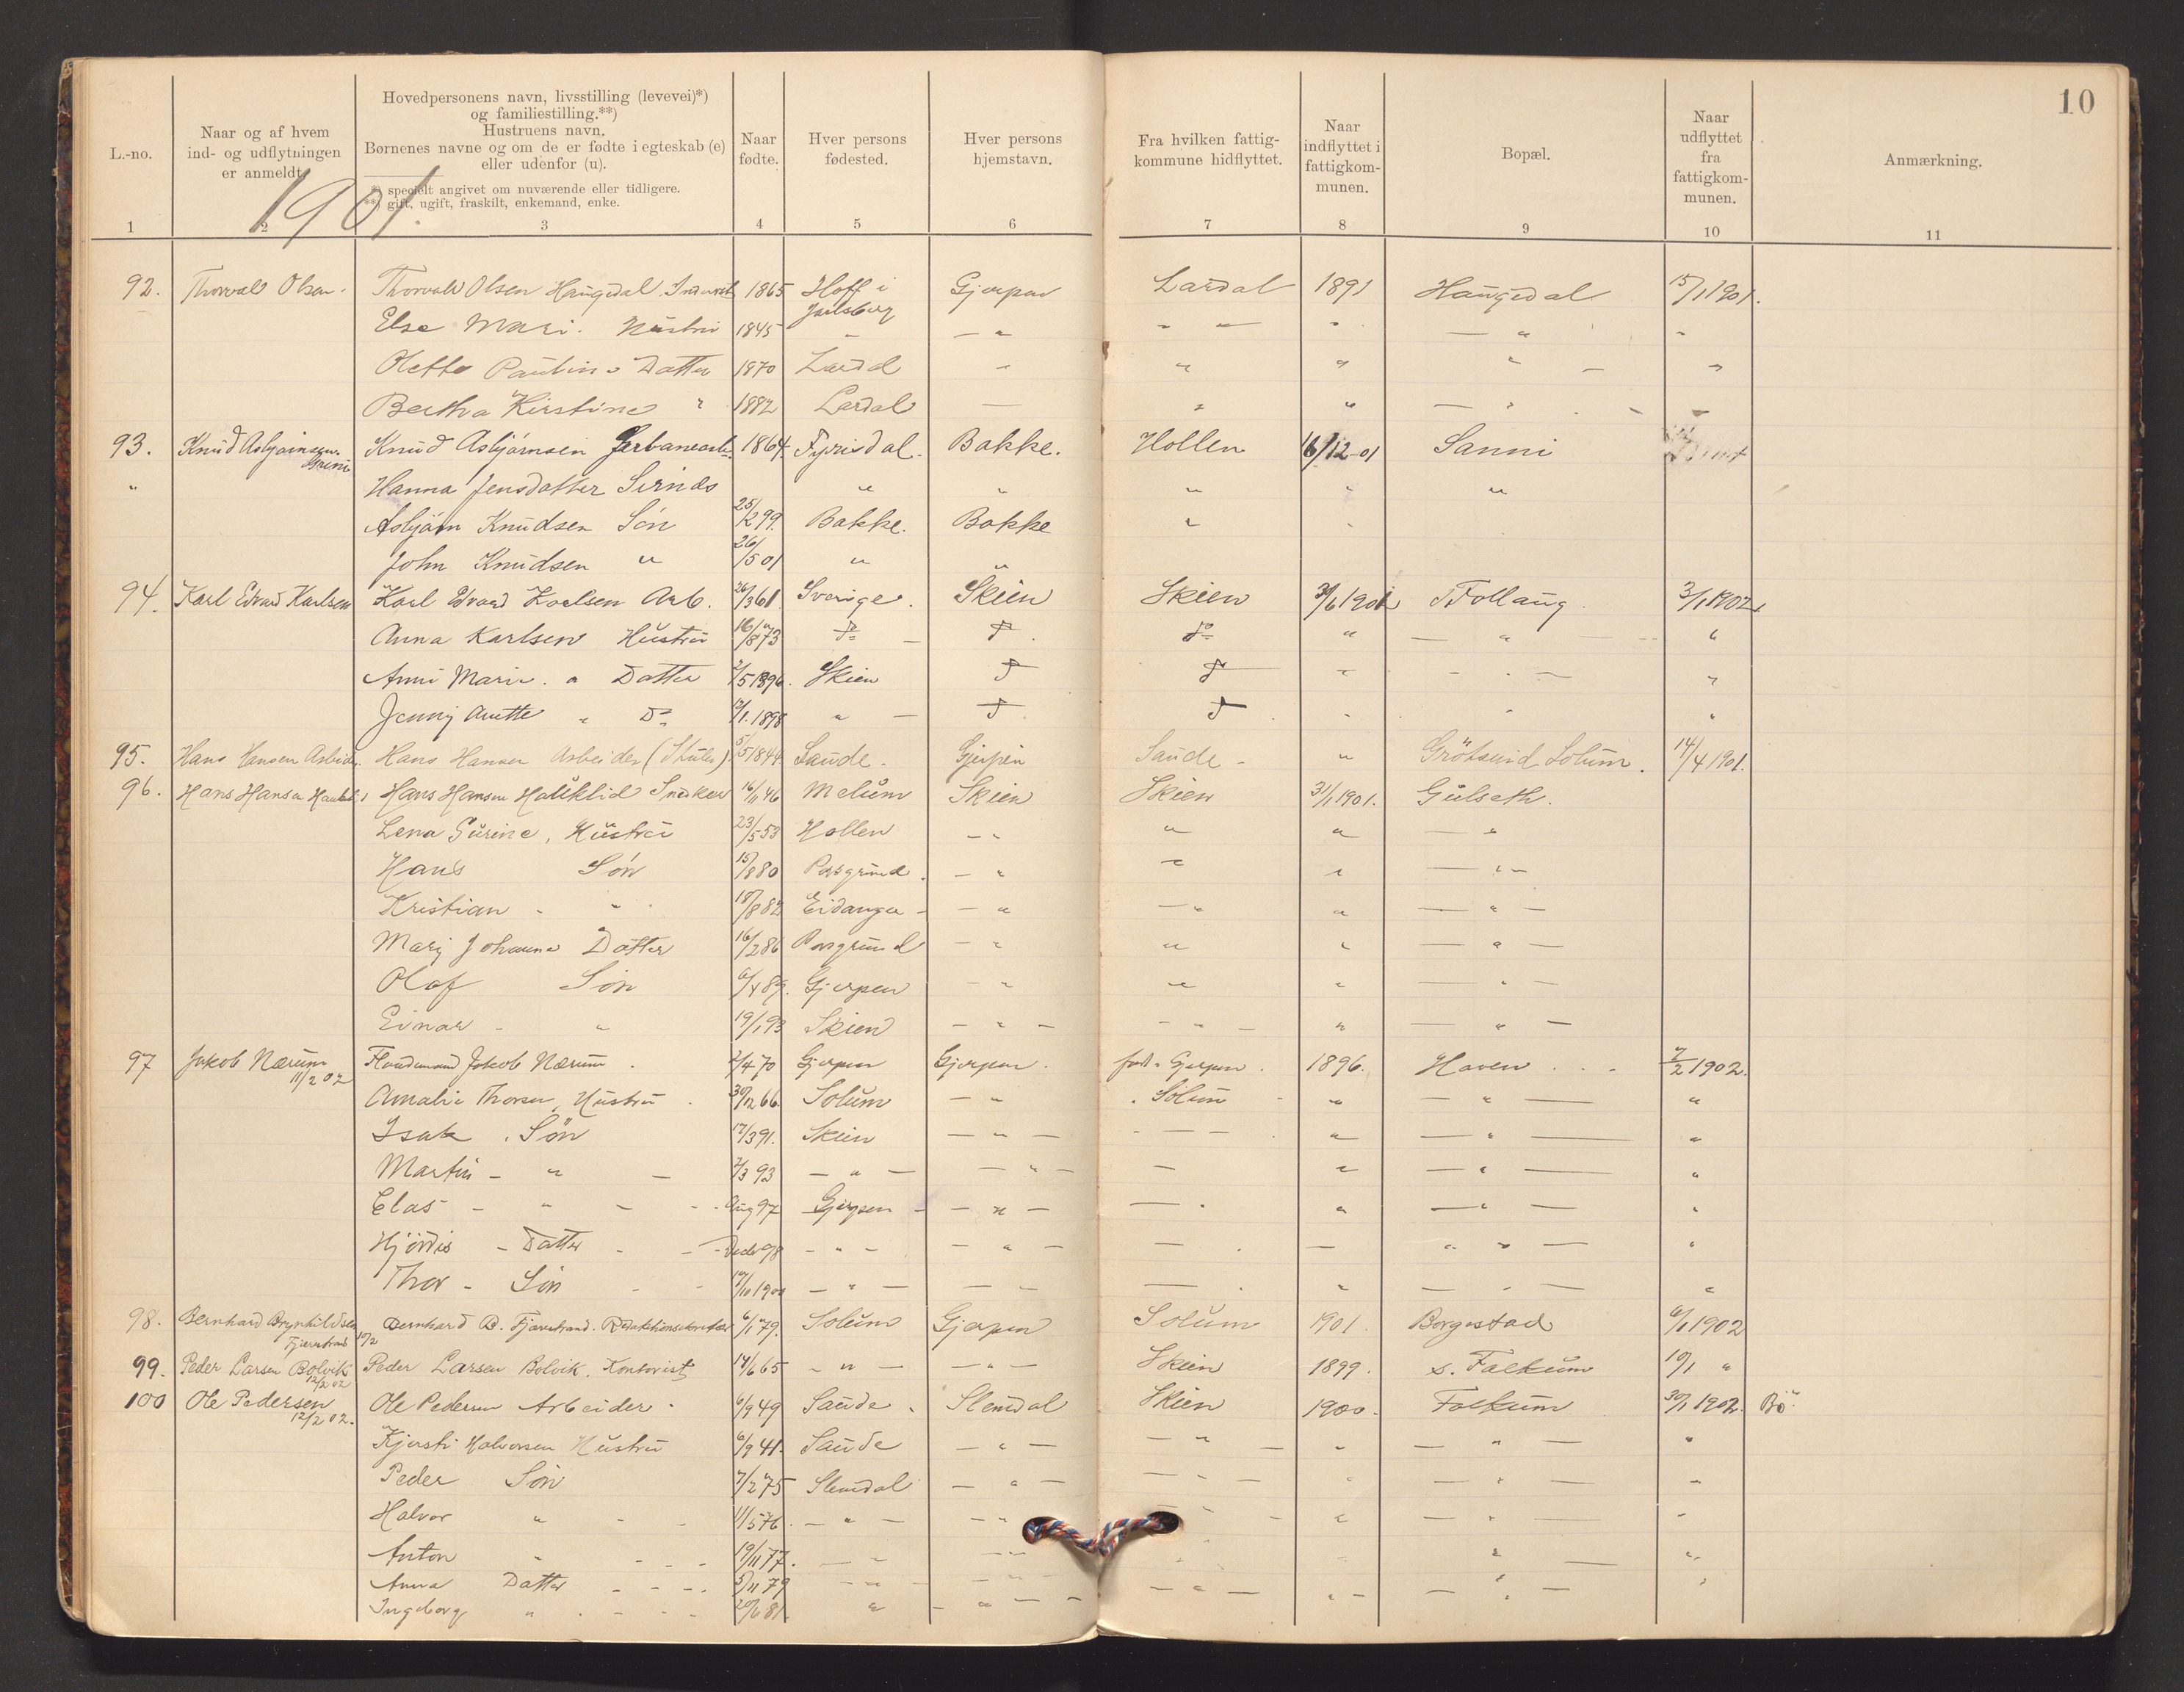 10
L.-no.
Naar og af hvem
ind- og udflytningen
er anmeldt.
Hovedpersonens navn, livsstilling (levevei)*)
og familiestilling.**)
Hustruens navn.
Børnenes navne og om de er fødte i egteskab (e)
eller udenfor (u).
*) specielt angivet om nuværende eller tidligere.
**) gift, ugift, fraskilt, enkemand, enke.
Naar
fødte.
Hver persons
fødested.
Hver persons
hjemstavn.
Fra hvilken fattig-
kommune hidflyttet.
Naar
indflyttet i
fattigkom-
munen.
Bopæl.
Naar
udflyttet
fra
fattigkom-
munen.
Anmærkning.
1 2 3 4 5 6 7 8 9 10 11
1901.
92. Thorvald Olsen. Thorvald Olsen Haugedal 1865 Hoff i Jarlsberg Gjerpen Lardal 1891 Haugedal 15/1 1901.
Else Mari. Hustru 1845 - - " - " " - " -
Olette Pauline Datter 1870 Lardal " " " " "
Bertha Kirstine " 1882 Lardal — " " — "
93. Knud Asbjørnsen Knud Asbjørnsen 1864 Fyrisdal. Bakke. Hollen 16/12-01 Sanni
" Hanna Jensdatter Sirnæs " " " " "
Asbjørn Knudsen Søn 25/2 99. Bakke. Bakke " "
John Knudsen " 26/5 01 " "
94. Karl Edvard Karlsen Karl Edvard Karlsen Arb. 26/3 61 Sverige. Skien Skien 1901 Follaug 3/1 1902
Anna Karlsen Hustru 16/8 73 Do Do Do " — " "
Anni Marie " Datter 2/5 1896. Skien Do Do " "
Jenny Anette " Do 1898 " — Do Do " "
95. Hans Hansen Arbeider. Hans Hansen Arbeider 5/5 1844 Saude. Gjerpen Saude - " Grötsund Solum. 14/4 1901.
96. Hans Hansen Hans Hansen Hauklid Snedker 16/11 46 Melum Skien Skien 31/1 1901. Gulseth.
Lena Gurine, Hustru 23/5 53 Hollen - " " " — "
Hans Søn 15/8 80 Porsgrund. — " " " — "
Kristian - " 18/8 82 Eidanger - — " — " " — " —
Marij Johanne Datter 16/2 86 Porsgrund — " " " — " —
Olaf Søn 6/4 89. Gjerpen — " " " — " —
Einar - " 19/1 93 Skien — " — — " — " — " —
97 Jakob Nærum 11/2 02 Jakob Nærum. 2/4 70 Gjerpen Gjerpen. Gjerpen. 1896. Haven 7/2 1902.
Amalie Thorsen, Hustru 30/12 66 Solum — " Solum " — " — "
Isak. Søn 17/3 91. Skien — " — — — " — " — "
Martin - " — 2/3 93 — " — — " — — " — " — "
Elas - " - Aug 97 Gjerpen — " — — " — " — "
Hjördis - Datter - Decbr 98 — " — — " — — — " " — "
Thor - Søn /10 1900 — " — — " — " — " — "
98. Bernhard Brynhildsen Fjærestrand 10/2 Bernhard B. Fjærestrand. Redaktionssekretær 6/1 79. Solum Gjerpen Solum 1901 Borgestad 6/1 1902
99. Peder Larsen Bolvik 12/2 02 Peder Larsen Bolvik. Kontorist 14/6 65 — " — — " — Skien 1899. s. Falkum 10/1 "
100 Ole Pedersen 12/2 02. Ole Pedersen Arbeider. 6/9 49 Saude. Slemdal Skien 1900. Falkum 30/1 1902. Bö.
Kjersti Halvorsen Hustru 6/9 41. Saude — " — — " — " — " — "
Peder Søn 7/2 75 Slemdal — " — — " — " — " — "
Halvor " - - 11/5 76. — " — — " " — " " — " — "
Anton " - - - 19/11 77. — " — " " " — "
Anna Datter - - - 5/11 79 — " — — " — — " — " — — " — "
Ingeborg " - - - 20/6 81 " — " —